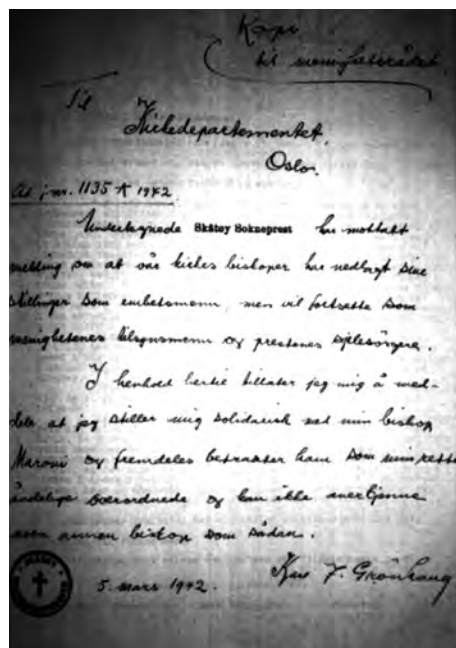 Kopi
til menighetsrådet
Til
Kirkedepartementet,
Oslo.
Ad j.nr. 1135 A 1942.
Undertegnede Skåtøy Sokneprest har mottatt
melding om at vår kirkes biskoper har nedlagt sine
stillinger som embetsmenn, men vil fortsette som
menighetenes tilsynsmenn og prestenes sjelesörgere.
I henhold hertil tillater jeg mig å med-
dele at jeg stiller mig solidarisk med min biskop
Maroni og fremdeles betrakter ham som min rette
åndelige overordnede og kan ikke anerkjenne
noen annen biskop som sådan.
5. mars 1942.
F. Grönhaug